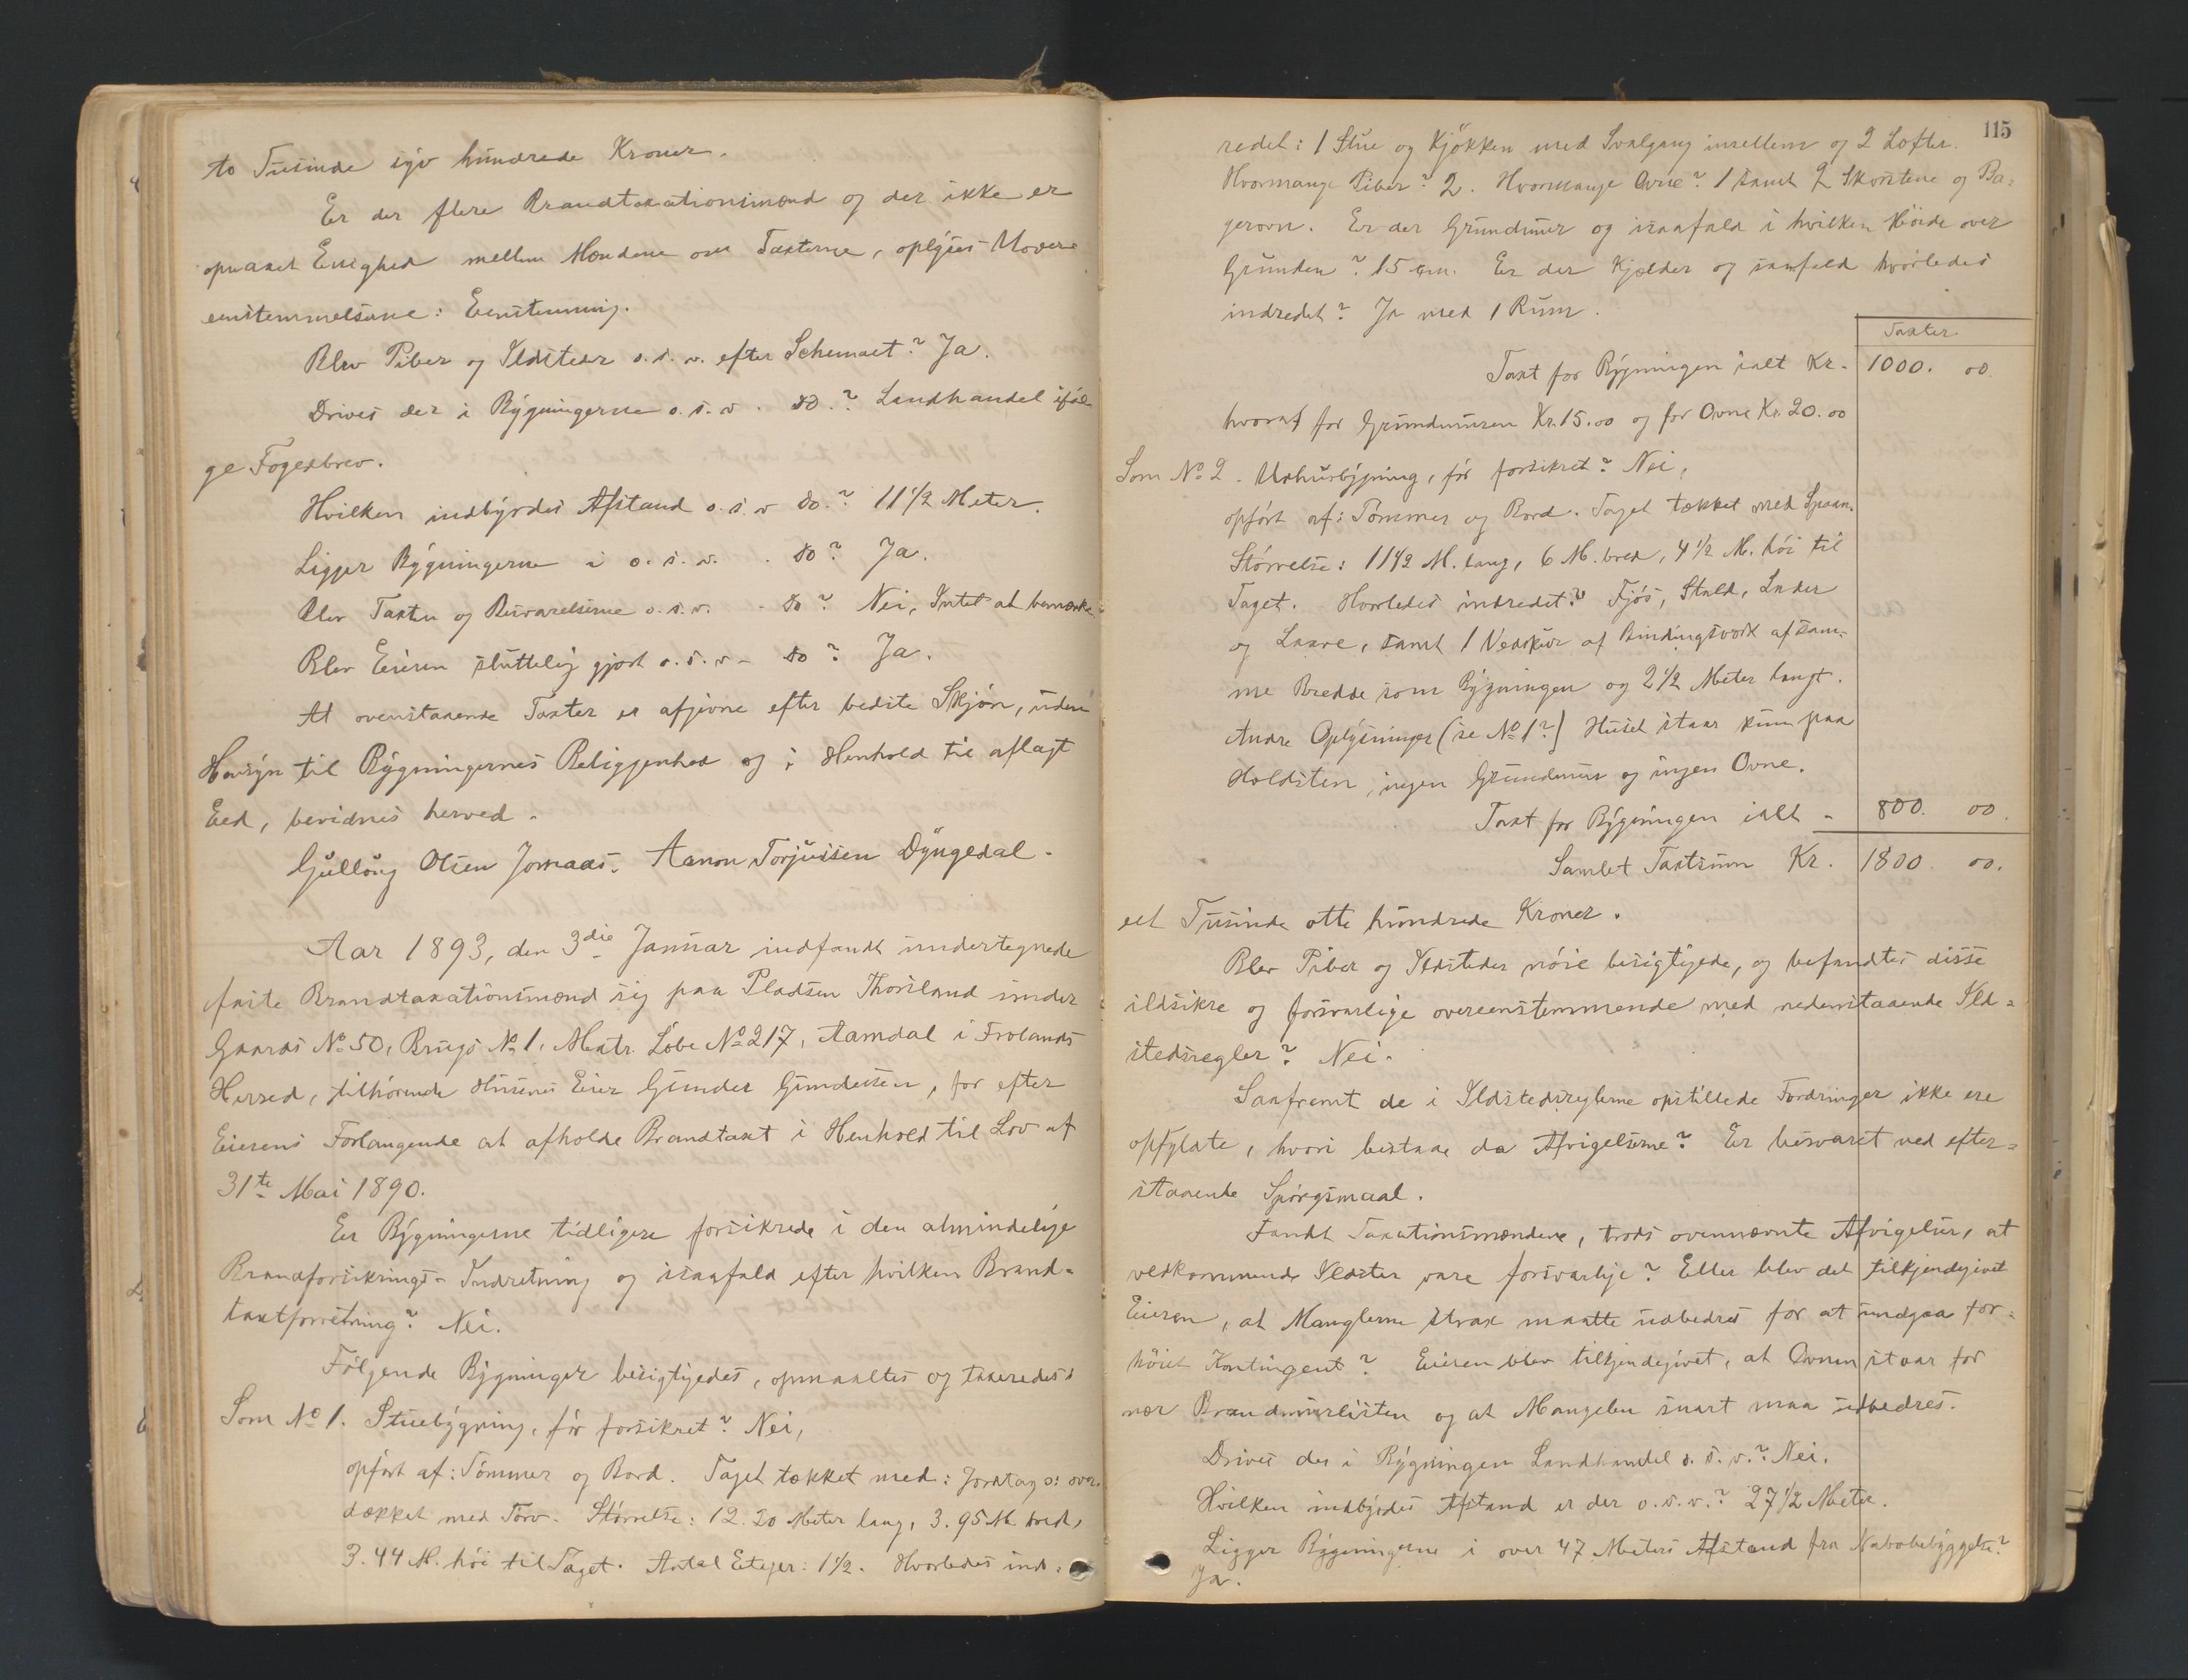 to Tusinde syv hundrede Kroner.
Er der flere Brandtaxationsmænd og der ikke er
opnaaet Enighed mellem Mændene om Taxterne, oplyses Uover-
enstemmelserne: Eenstemmig.
Blev Piber og Ildsteder o.s.v. efter Schemaet? Ja.
Drives der i Bygningerne o.s.v. do.? Landhandel iføl-
ge Fogedbrev.
Hvilken indbyrdes Afstand o.s.v do.? 11 1/2 Meter.
Ligger Bygningerne i o.s.v. do? Ja.
Blev Taxten og Besvarelserne o.s.v. do? Nei, Intet at bemærke.
Blev Eieren sluttelig gjort o.s.v- do? Ja.
At ovenstaaende Taxter er afgivne efter bedste Skjøn, uden
Hensyn til Bygningernes Beliggenhed og i Henhold til aflagt
Eed, bevidnes herved.
Gullong Olsen Jomaas. Aanon Torjussen Dyngedal.
Aar 1893, den 3die Januar indfandt undertegnede
faste Brandtaxationsmænd sig paa Pladsen Thorsland under
Gaards No 50, Brugs No 1, Matr. Løbe No 217, Aamdal i Frolands
Herred, tilhørende Husenes Eier Gunder Gundersen, for efter
Eierens Forlangende at afholde Brandtaxt i Henhold til Lov af
31te Mai 1890.
Er Bygningerne tidligere forsikrede i den almindelige
Brandforsikrings-Indretning og isaafald efter hvilken Brand-
taxtforretning? Nei.
Følgende Bygninger besigtigedes, opmaaltes og taxeredes:
Som No 1. Stuebygning, før forsikret? Nei,
opført af: Tømmer og Bord. Taget tækket med: Jordtag o: over-
dækket med Torv. Størrelse: 12.20 Meter lang, 3.95 M. bred,
3.44 M. høi til Taget. Antal Etager: 1 1/2. Hvorledes ind-
115
redet: 1 Stue og Kjøkken med Svalgang imellem og 2 Lofter.
Hvormange Piber? 2. Hvormange Ovne? 1 samt 2 Skorstene og Ba-
gerovn. Er der Grundmur og isaafald i hvilken Høide over
Grunden? 15 cm. Er der Kjælder og isaafald hvorledes
indredet? Ja med 1 Rum.
Taxter
Taxt for Bygningen ialt Kr. 1000. 00
hvoraf for Grundmuren Kr. 15.00 og for Ovne Kr. 20.00
Som No 2. Udhusbygning, før forsikret? Nei,
opført af: Tømmer og Bord. Taget tækket med Spaan.
Størrelse: 11 1/2 M. lang, 6 M. bred, 4 1/2 M. høi til
Taget. Hvorledes indredet? Fjøs, Stald, Lader
og Laave, samt 1 Vedskur af Bindingsværk af sam-
me Bredde som Bygningen og 2 1/2 Meter langt.
Andre Oplysninger (se No 1?) Huset staar kun paa
Holdsten, ingen Grundmur og ingen Ovne.
Taxt for Bygningen ialt - 800. 00.
Samlet Taxtsum Kr. 1800 00.
eet Tusinde otte hundrede Kroner.
Blev Piber og Ildsteder nøie besigtigede, og befandtes disse
ildsikre og forsvarlige overeenstemmende med nedenstaaende Ild-
stedsregler? Nei.
Saafremt de i Ildstedsreglerne opstillede Fordringer ikke ere
opfyldte, hvori bestaae da Afvigelserne? Er besvaret ved efter-
staaende Spørgsmaal.
Fandt Taxationsmændene, trods ovennævnte Afvigelser, at
vedkommende Ildster vare forsvarlige? Eller blev det tilkjendegivet
Eieren, at Manglerne strax maatte udbedres for at undgaa for-
høiet Kontingent? Eieren blev tilkjendegivet, at Ovnen staar for
nær Brandmurlisten og at Mangelen snart maa udbedres.
Drives der i Bygningen Landhandel o.s.v.? Nei.
Hvilken indbyrdes Afstand er der o.s.v.? 27 1/2 Meter.
Ligger Bygningerne i over 47 Meters Afstand fra Nabobebyggelse?
Ja.